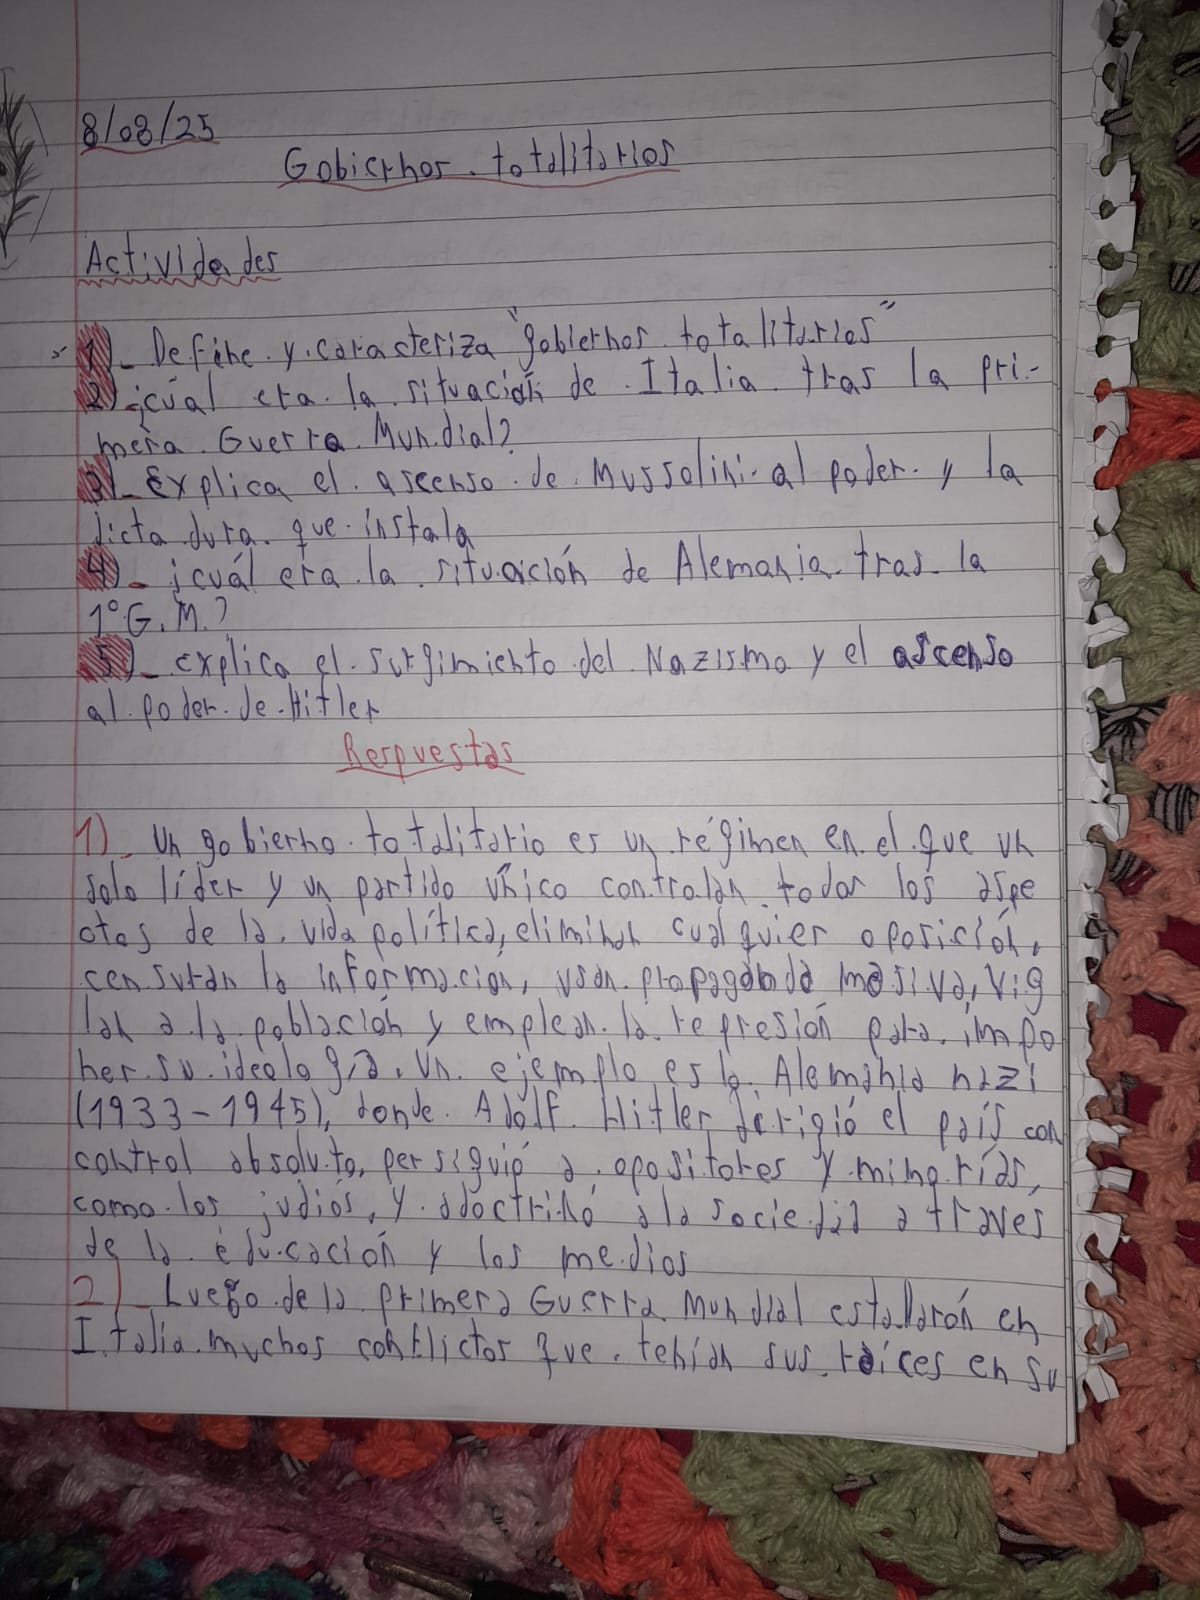 8/08/25
Gobiernos totalitarios
Actividades
1)_ Define y caracteriza "gobiernos totalitarios"
2) ¿cúal era la situación de Italia tras la pri-
mera Guerra Mundial?
3)_ Explica el ascenso de Mussolini al poder y la
dictadura que instala
4)_ ¿cuál era la situación de Alemania tras la
1° G.M.?
5)_ explica el surgimiento del Nazismo y el ascenso
al poder de Hitler
Respuestas
1)_ Un gobierno totalitario es un régimen en el que un
solo líder y un partido único controlan todos los aspe
ctos de la vida política, eliminan cualquier oposición,
censuran la información, usan propaganda masiva, vig
lan a la población y emplean la represión para impo
ner su ideología. Un ejemplo es la Alemania nazi
(1933-1945), donde Adolf Hitler dirigió el país con
control absoluto, persiguió a opositores y minorías,
como los judíos, y adoctrinó a la sociedad a traves
de la educación y los medios
2)_ Luego de la primera Guerra Mundial estallarón en
Italia muchos conflictos que tenían sus raíces en su